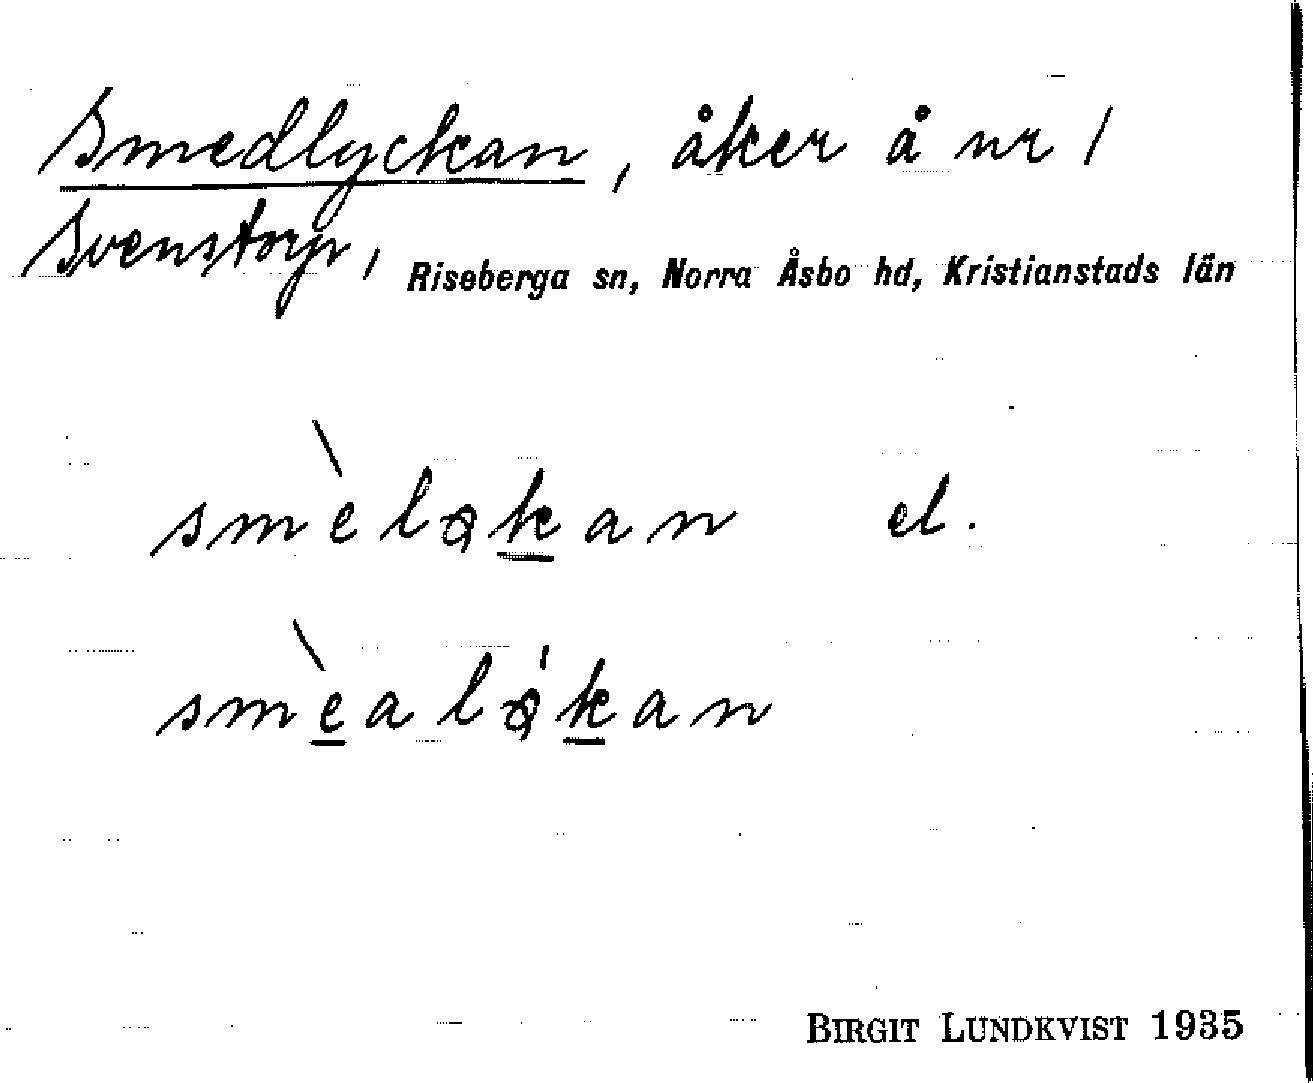 Smedlyckan, åker å nr 1
Svenstorp, Riseberga sn, Norra Åsbo hd, Kristianstads län
smèløkan el.
smèaløkan
BIRGIT LUNDKVIST 1935